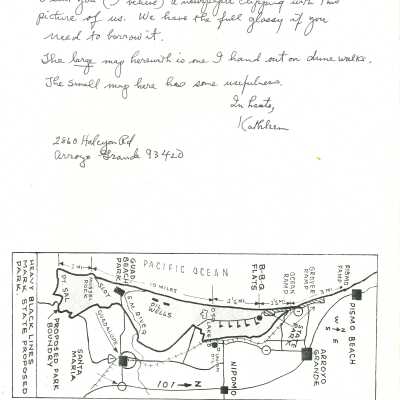 I sent you (I believe) a newspaper clipping with this
picture of us. We have the full glossy if you
need to borrow it.
The large map herewith is one I hand out on dune walks.
The small map here has some usefulness.
In haste,
Kathleen
2860 Halcyon Rd
Arroyo Grande 93420
PACIFIC OCEAN
10 MILES
PT. SAL
GUAD. BEACH PARK
OIL WELLS
B-B-Q FLATS
OCEAN RAMP
GROVER RAMP
PISMO RAMP
PISMO BEACH
N
E
W
S
ARROYO GRANDE
STATE PARK
NIPOMO
101 → N
GUADALUPE
SANTA MARIA
PROPOSED PARK BOUNDRY
HEAVY BLACK LINES
MARK STATE PROPOSED
PARK.